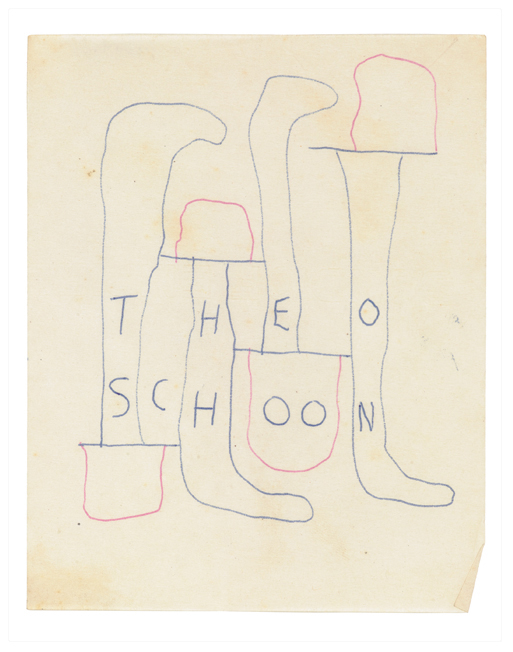 THEO
SCHOON